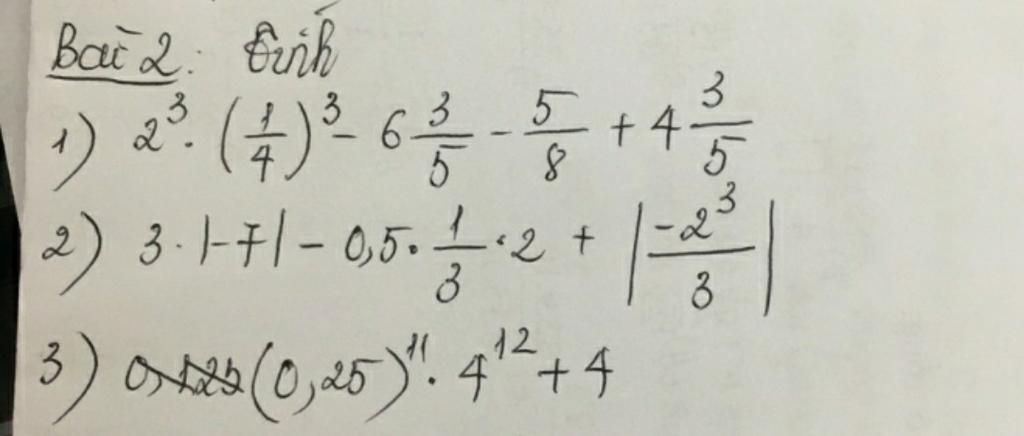 Bài 2: Tính
1) 2³ · (1/4)³ - 6 3/5 - 5/8 + 4 3/5
2) 3 · |-7| - 0,5 · 1/3 · 2 + |-2³/3|
3) (0,25)¹¹ · 4¹² + 4